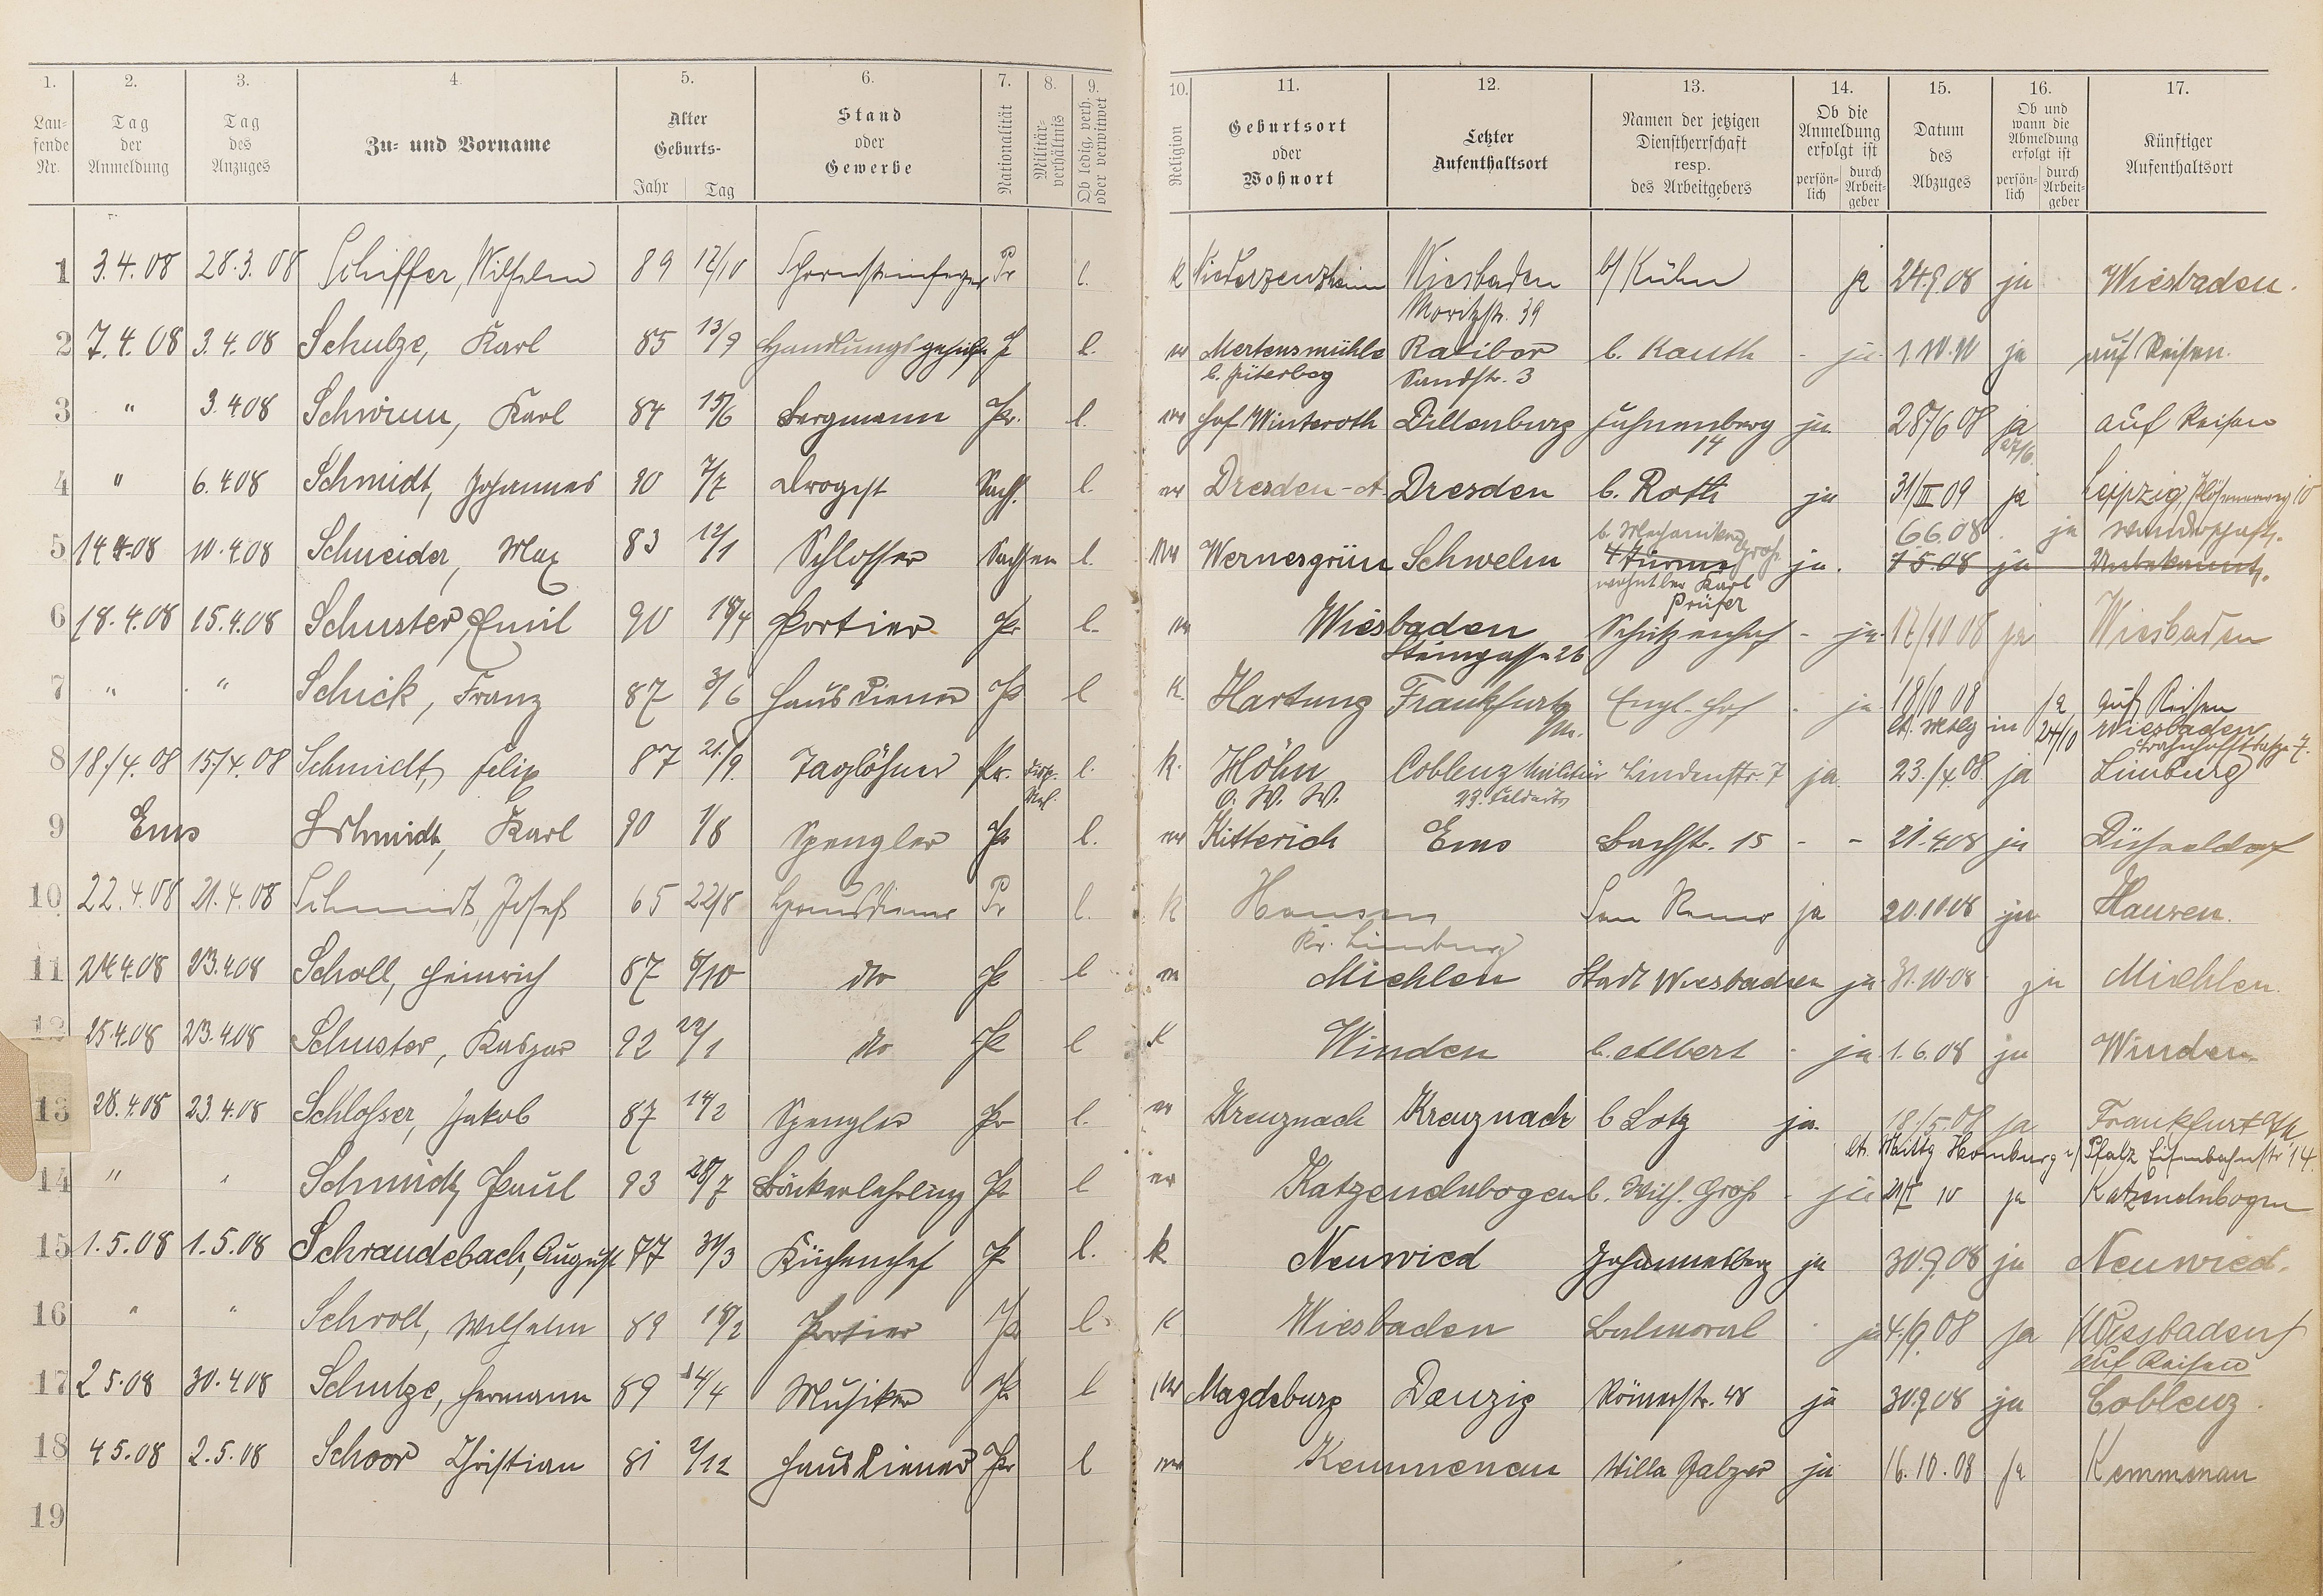 1. 2. 3. 4. 5. 6. 7. 8. 9. 10. 11. 12. 13. 14. 15. 16. 17.
Lau-
fende
Nr.
Tag
der
Anmeldung
Tag
des
Anzuges
Zu- und Vorname
Alter
Geburts-
Jahr Tag
Stand
oder
Gewerbe
Nationalität
Militär-
verhältnis
Ob ledig, verh.
oder verwitwet
Religion
Geburtsort
oder
Wohnort
Letzter
Aufenthaltsort
Namen der jetzigen
Dienstherrschaft
resp.
des Arbeitgebers
Ob die
Anmeldung
erfolgt ist
persön-
lich
durch
Arbeit-
geber
Datum
des
Abzuges
Ob und
wann die
Abmeldung
erfolgt ist
persön-
lich
durch
Arbeit-
geber
Künftiger
Aufenthaltsort
1 3.4.08 28.3.08 Schiffer, Wilhelm 89 12/10 Schornsteinfeger Pr l. k Niederzeuzheim Wiesbaden b/ Kühn ja 24.9.08 ja Wiesbaden.
Moritzstr. 39
2 7.4.08 3.4.08 Schulze, Karl 85 13/9 Handlungsgehilfe P l. Mertensmühle Ratibor b. Kauth - ja. 1.10.10 ja auf Reisen.
b. Jüterbog Sandstr. 3
3 " 3.4.08 Schwinn, Karl 84 15/6 Bergmann Pr. l. Hof Winteroth Dillenburg ja 28/6 08 ja auf Reisen
14 27/6.
4 " 6.4.08 Schmidt, Johannes 90 7/7 Drogist Sachs. l. Dresden-A. Dresden b. Roth ja 31/III 09 ja Leipzig, 10
b. Mechaniker Groß 6.6.08. ja Wanderschaft.
5 14.4.08 10.4.08 Schneider, Max 83 12/1 Schlosser Sachsen l. Wernesgrün Schwelm 4 Türme ja. 7.5.08 ja Unbekannt.
wohnt bei Karl
Prüfer
6 18.4.08 15.4.08 Schuster, Emil 90 18/4 Portier Pr l. Wiesbaden Schützenhof - ja. 17/10 08 ja Wiesbaden
Steingasse 26
7 " " Schick, Franz 87 3/6 Hausdiener Pr l k. Hartung Frankfurt Engl. Hof - ja 18/10 08 ja auf Reisen
a/M. lt. Mtlg in 24/10 Wiesbaden
Bahnhofstraße 7.
8 18./4.08 15./4.08 Schmidt, Felix 87 21./9. Taglöhner Pr. l. k. Höhn Coblenz Militär Lindenstr. 7 ja 23./4.08 ja Limburg
O. W. W. 23. Feldart.
9 Ems Schmidt, Karl 90 1/8 Spengler Pr l. Kitterich Ems Bachstr. 15 - - 21.4.08 ja Düsseldorf
10 22.4.08 21.4.08 Schmidt, Josef 65 22/8 Hausdiener Pr l. k Hausen San Remo ja 20.10.08 ja Hausen.
Kr. Limburg
11 24.4.08 23.4.08 Scholl, Heinrich 87 8/10 dto P l Miehlen Stadt Wiesbaden ja 31.10.08 ja Miehlen.
12 25.4.08 23.4.08 Schuster, Kaspar 92 22/1 dto Pr l k Winden b. Albert - ja 1.6.08 ja Winden
13 28.4.08 23.4.08 Schlosser, Jakob 87 14/2 Spengler Pr l. Kreuznach Kreuznach b Lotz ja. 18./5.08 ja Frankfurt a/M
lt. Mttlg Homburg i/ Pfalz Eisenbahnstr 14.
14 " " Schmidt, Paul 93 28/7 Bäckerlehrling Pr l Katzenelnbogen b. Wilh. Groß - ja 21/I 10 ja Katzenelnbogen
15 1.5.08 1.5.08 Schraudebach, August 77 31/3 Küchenchef P l. k Neuwied Johannesberg ja 30.9.08 ja Neuwied.
16 " " Schroll, Wilhelm 89 18/2 Portier Pr l. k Wiesbaden Balmoral - ja 4./9.08 ja Wiesbaden
auf Reisen
17 2.5.08 30.4.08 Schulze, Hermann 89 14/4 Musiker Pr l Magdeburg Danzig Römerstr. 48 ja 30.9.08 ja Coblenz.
18 4.5.08 2.5.08 Schoor Christian 81 2/12 Hausdiener Pr l Kemmenau Villa Balzer ja 16.10.08 ja Kemmenau
19